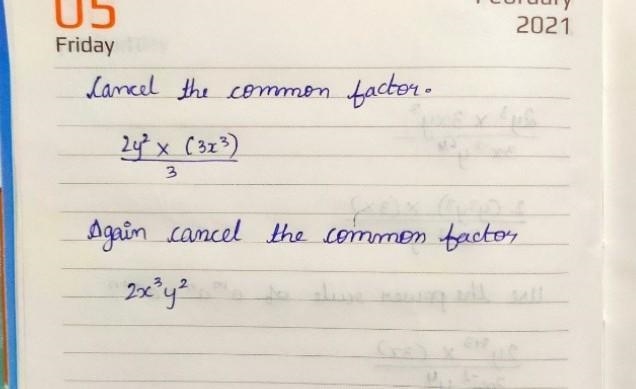 05
February
Friday
2021
Cancel the common factor.
2y² x (3x³)
3
Again cancel the common factor
2x³y²